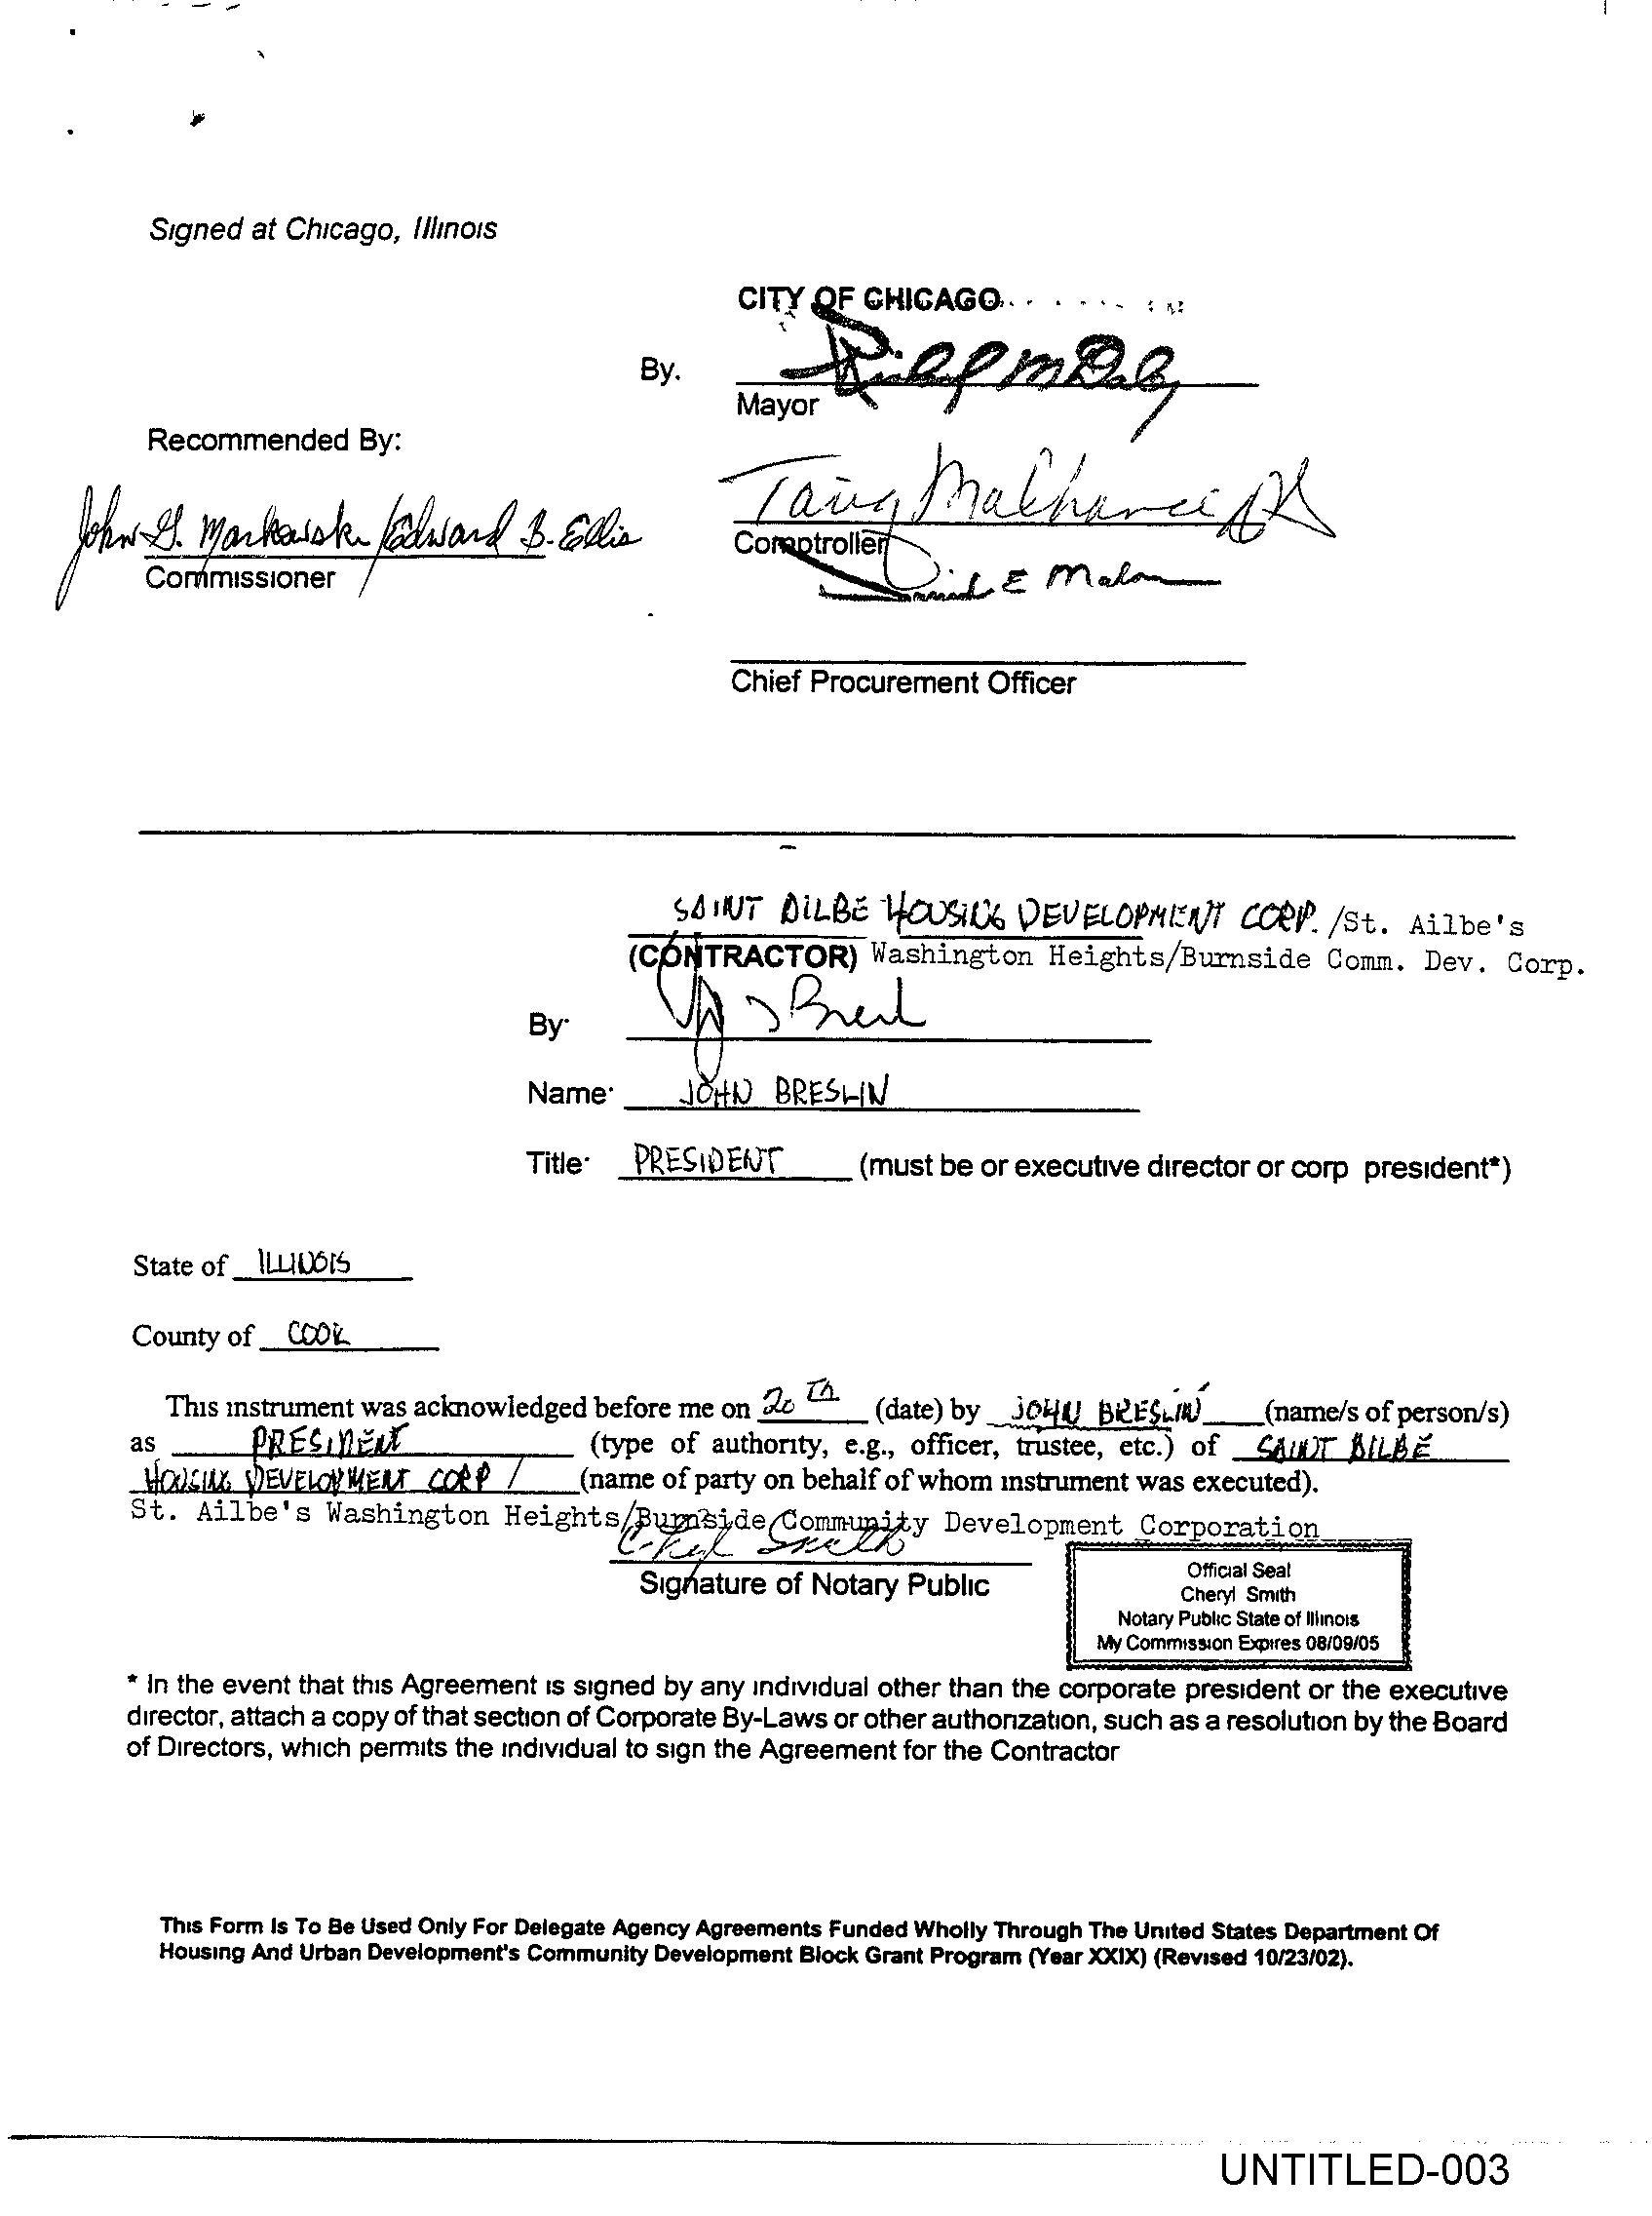 Signed at Chicago, Illinois
CITY OF CHICAGO
By.
Mayor
Recommended By:
John G. Markowski / Edward B. Ellis
Commissioner
Comptroller
E Malon
Chief Procurement Officer
SAINT AILBE HOUSING DEVELOPMENT CORP. /St. Ailbe's
(CONTRACTOR) Washington Heights/Burnside Comm. Dev. Corp.
By
Name JOHN BRESLIN
Title PRESIDENT (must be or executive director or corp president*)
State of ILLINOIS
County of COOK
This instrument was acknowledged before me on 20 Th (date) by JOHN BRESLIN (name/s of person/s)
as PRESIDENT (type of authority, e.g., officer, trustee, etc.) of SAINT AILBE
HOUSING DEVELOPMENT CORP / (name of party on behalf of whom instrument was executed).
St. Ailbe's Washington Heights/Burnside Community Development Corporation
Cheryl Smith
Signature of Notary Public
Official Seal
Cheryl Smith
Notary Public State of Illinois
My Commission Expires 08/09/05
* In the event that this Agreement is signed by any individual other than the corporate president or the executive
director, attach a copy of that section of Corporate By-Laws or other authorization, such as a resolution by the Board
of Directors, which permits the individual to sign the Agreement for the Contractor
This Form Is To Be Used Only For Delegate Agency Agreements Funded Wholly Through The United States Department Of
Housing And Urban Development's Community Development Block Grant Program (Year XXIX) (Revised 10/23/02).
UNTITLED-003